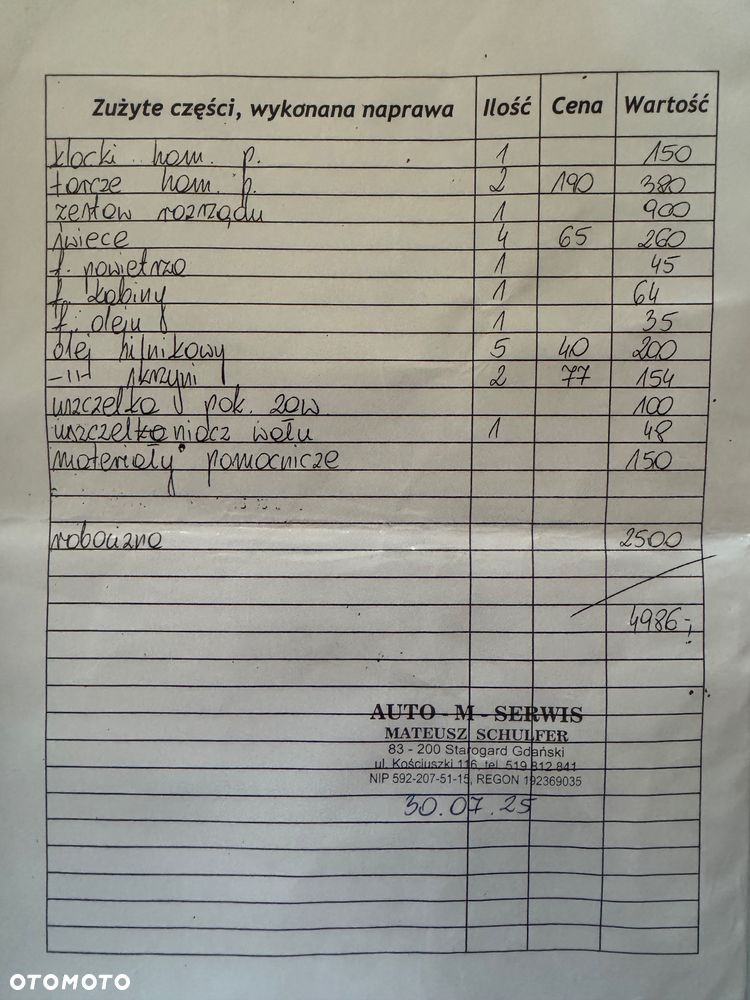 Zużyte części, wykonana naprawa Ilość Cena Wartość
klocki ham. p. 1 150
tarcze ham. p. 2 190 380
zestaw rozrządu 1 900
świece 4 65 260
f. powietrza 1 45
f. kabiny 1 64
f. oleju 1 35
olej silnikowy 5 40 200
-||- skrzyni 2 77 154
uszczelka pok. zaw 100
uszczelniacz wału 1 48
materiały pomocnicze 150
robocizna 2500
4986,-
AUTO - M - SERWIS
MATEUSZ SCHULFER
83 - 200 Starogard Gdański
ul. Kościuszki 116, tel. 519 812 841
NIP 592-207-51-15, REGON 192369035
30.07.25
OTOMOTO